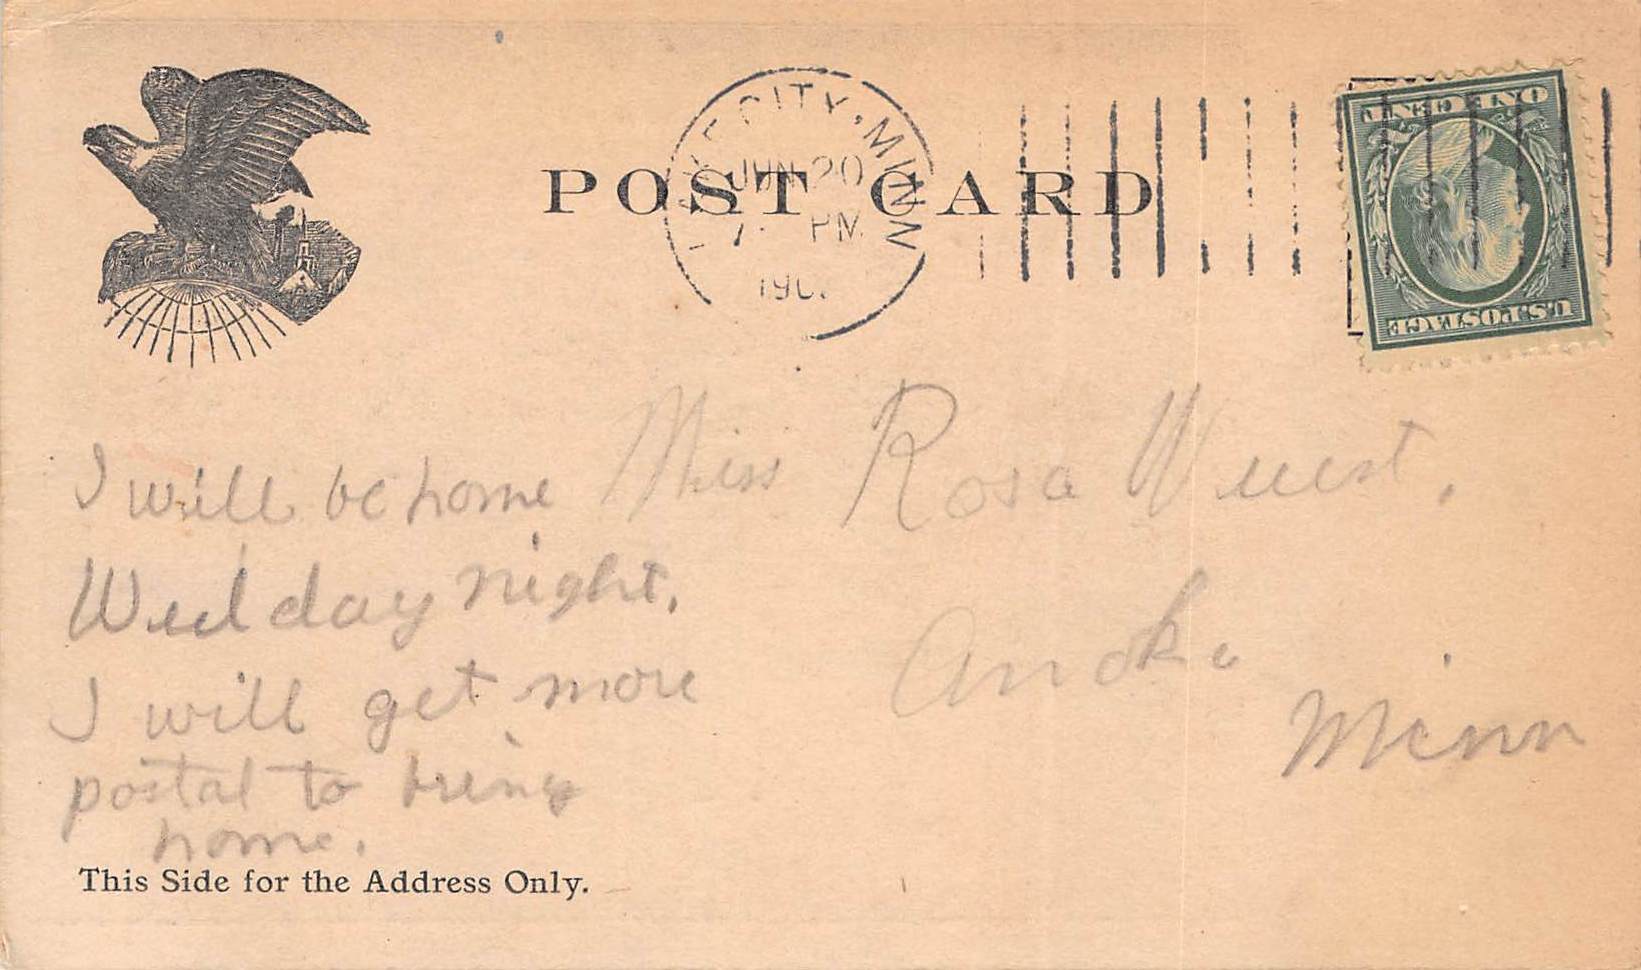 POST CARD
LAKE CITY, MINN
JUN 20
7 - PM
ONE CENT
U.S. POSTAGE
I will be home
Wed day night.
I will get more
postal to bring
home.
Miss Rosa Wuest.
Anoka
Minn
This Side for the Address Only.